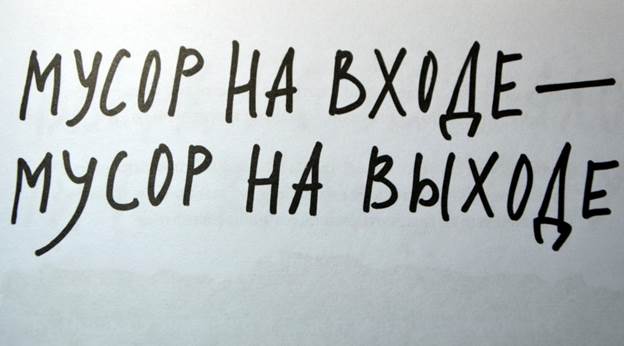 МУСОР НА ВХОДЕ —
МУСОР НА ВЫХОДЕ